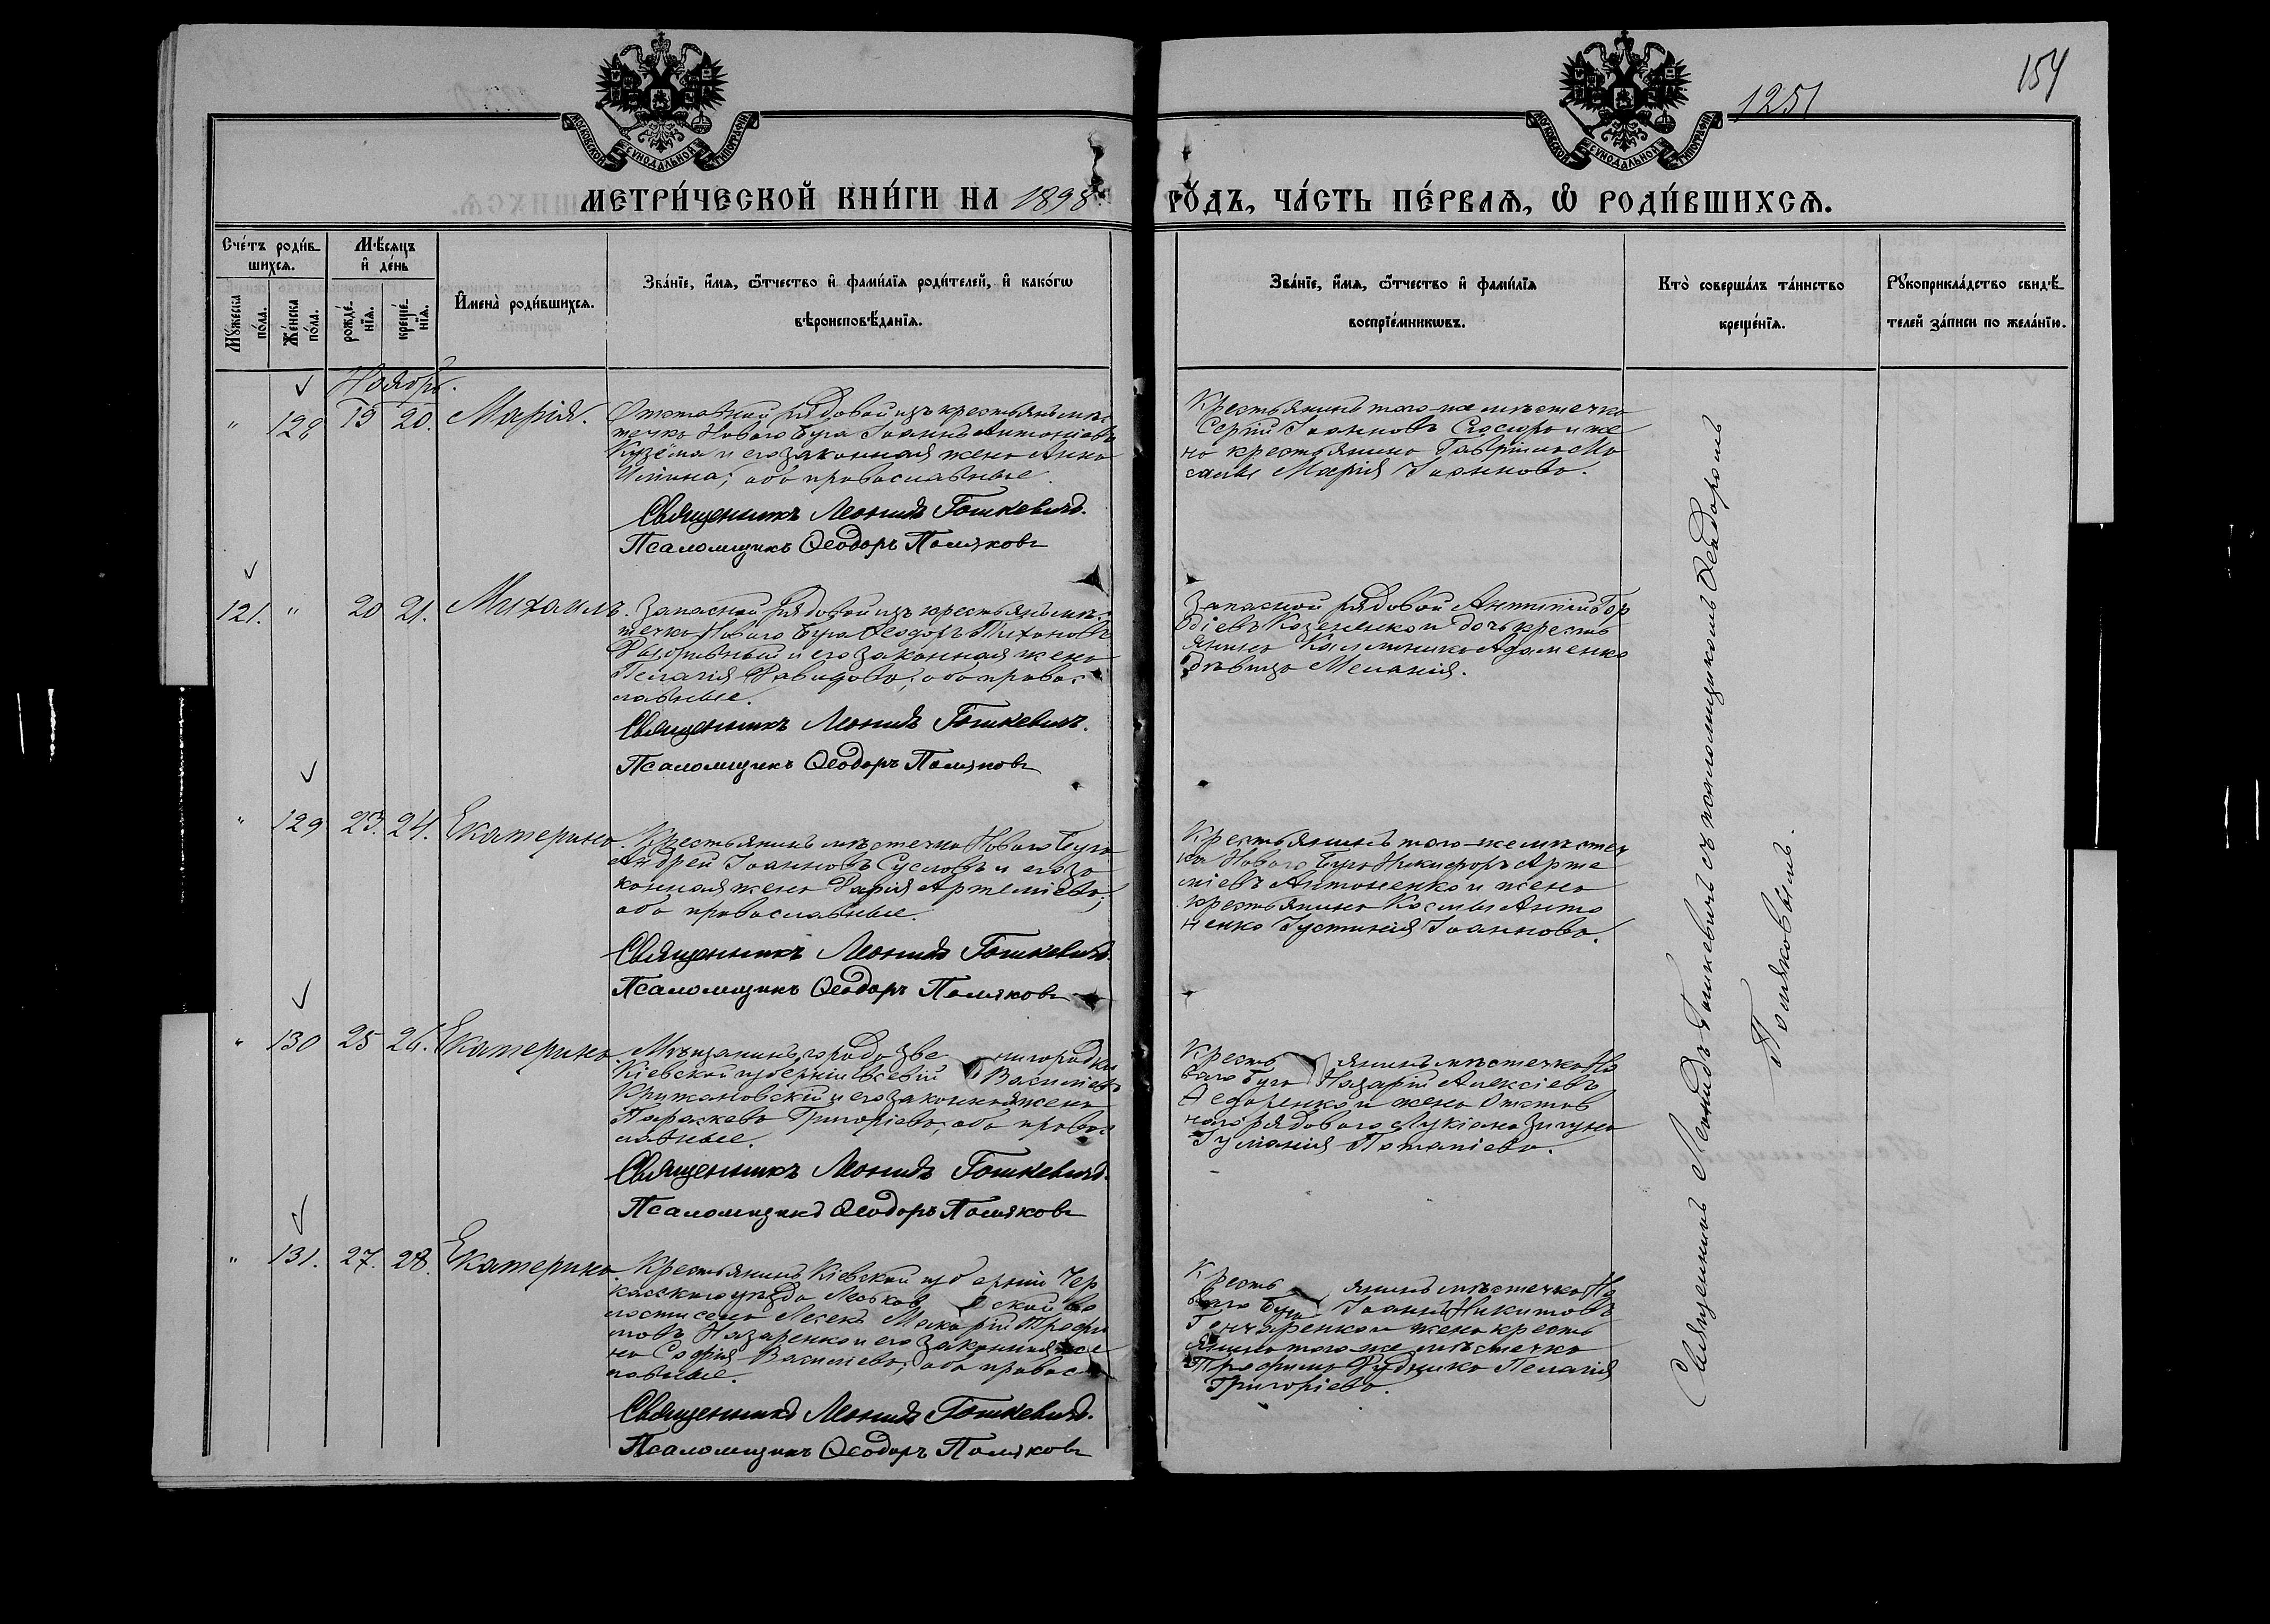 1251
154
МОСКОВСКОЙ СѴНОДАЛЬНОЙ ТИПОГРАФІИ
МОСКОВСКОЙ СѴНОДАЛЬНОЙ ТИПОГРАФІИ
МЕТРИ́ЧЕСКОЙ КНИ́ГИ НА 1898
ГО́ДЪ, ЧА́СТЬ ПЕ́РВАѦ, Ѡ РОДИ́ВШИХСѦ.
Сче́тъ роди́в-
шихсѧ.
Мꙋ́жеска
по́ла.
Же́нска
по́ла.
Мѣ́сѧцъ
и҆ де́нь
рожде́-
нїѧ.
креще́-
нїѧ.
И҆мена̀ роди́вшихсѧ.
Зва́нїе, и҆́мѧ, ѻ҆́тчество и҆ фами́лїѧ роди́телей, и҆ како́гѡ
вѣроисповѣ́данїѧ.
Зва́нїе, и҆́мѧ, ѻ҆́тчество и҆ фами́лїѧ
воспрїе́мникѡвъ.
Кто̀ соверша́лъ та́инство
креще́нїѧ.
Рꙋкоприкла́дство свидѣ́-
телей за́писи по жела́нїю.
Ноябрь.
" 128 19 20. Марія.
Отставной рядовой изъ крестьянъ мѣс
течка Новаго Буга Іоаннъ Антоніевъ
Кузёма и его законная жена Анна
Ильина; оба православные.
Священникъ Леонидъ Гошкевичъ.
Псаломщикъ Ѳеодоръ Поляковъ
Крестьянинъ того-же мѣстечка
Сергій Іоанновъ и же
на крестьянина Гавріила Мо
Марія Іоаннова.
121. " 20 21. Михаилъ.
Запасной рядовой изъ крестьянъ мѣс
течка Новаго Буга Ѳеодоръ Тихоновъ
и его законная жена
Пелагія Давидова; оба правос
лавные.
Священникъ Леонидъ Гошкевичъ.
Псаломщикъ Ѳеодоръ Поляковъ
Запасной рядовой Антипій Гор
діевъ Козененко и дочь кресть
янина Каллиника Адаменко
дѣвица Меланія.
" 129 23. 24. Екатерина.
Крестьянинъ мѣстечка Новаго Буга
Андрей Іоанновъ Сусловъ и его за
конная жена Дарія Артеміева;
оба православные.
Священникъ Леонидъ Гошкевичъ.
Псаломщикъ Ѳеодоръ Поляковъ
Крестьянинъ того-же мѣстеч
ка Новаго Буга Никифоръ Арте
міевъ Антоненко и жена
крестьянина Космы Анто
ненко Іустинія Іоаннова.
" 130 25 26. Екатерина.
Мѣщанинъ города Зве нигородки
Кіевской губерніи Евсевій Васильевъ
Крижановскій и его законная жена
Параскева Григоріева; оба правос
лавные.
Священникъ Леонидъ Гошкевичъ.
Псаломщикъ Ѳеодоръ Поляковъ
Кресть янинъ мѣстечка Но
ваго Буга Назарій Алексіевъ
Ѳедоренко и жена Отстав
наго рядового Лукіана Зигуна
Іуліанія Потапіева.
" 131. 27. 28. Екатерина.
Крестьянинъ Кіевской губерніи Чер
касскаго уѣзда Леськов ской во
лости села Лесекъ Макарій Трофи
мовъ Назаренко и его законная же
на Софія Васильева; оба правос
лавные.
Священникъ Леонидъ Гошкевичъ.
Псаломщикъ Ѳеодоръ Поляковъ
Кресть янинъ мѣстечка Но
ваго Буга Іоаннъ Никитовъ
Гончаренко и жена кресть
янина того-же мѣстечка
Трофима Рудника Пелагія
Григоріева.
Священникъ Леонидъ Гошкевичъ съ псаломщикомъ Ѳеодоромъ
Поляковымъ.